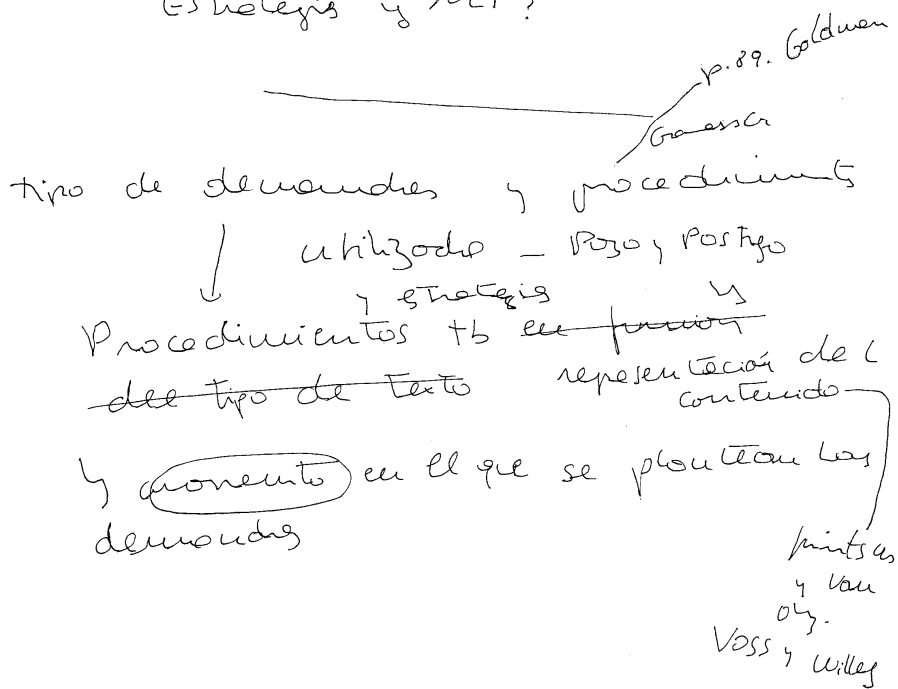 Estrategia y
p.89. Goldman
Graesser
tipo de demandas y procedimients
utilizados - Pozo y Postigo
y estrategia y
Procedimientos tb en función
del tipo de texto representación del
contenido
y momento en el que se plantean las
demandas
kintsch
y van
Voss y Willey